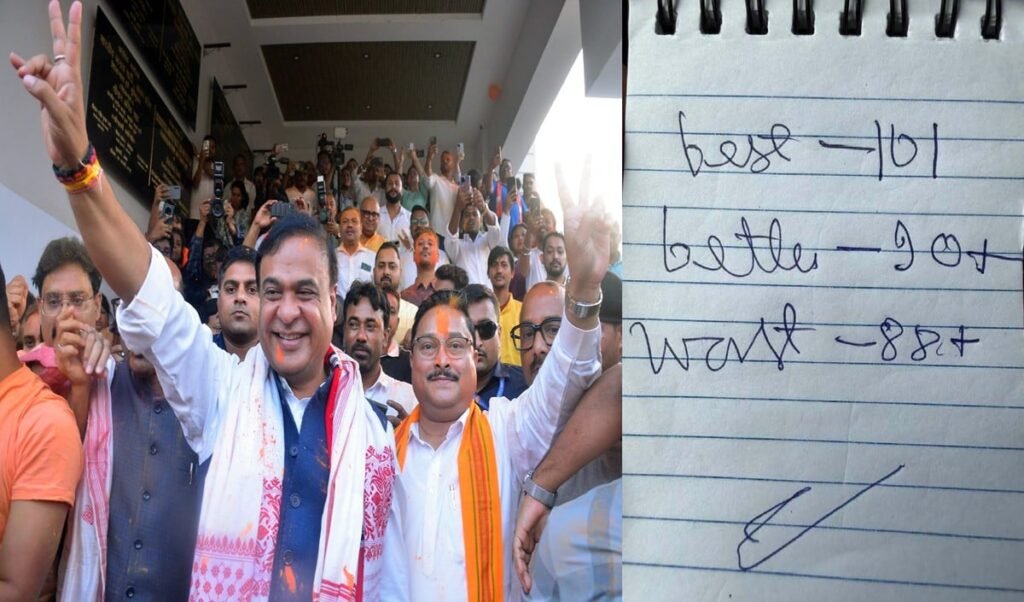 best – 101
better – 90+
worst – 88+